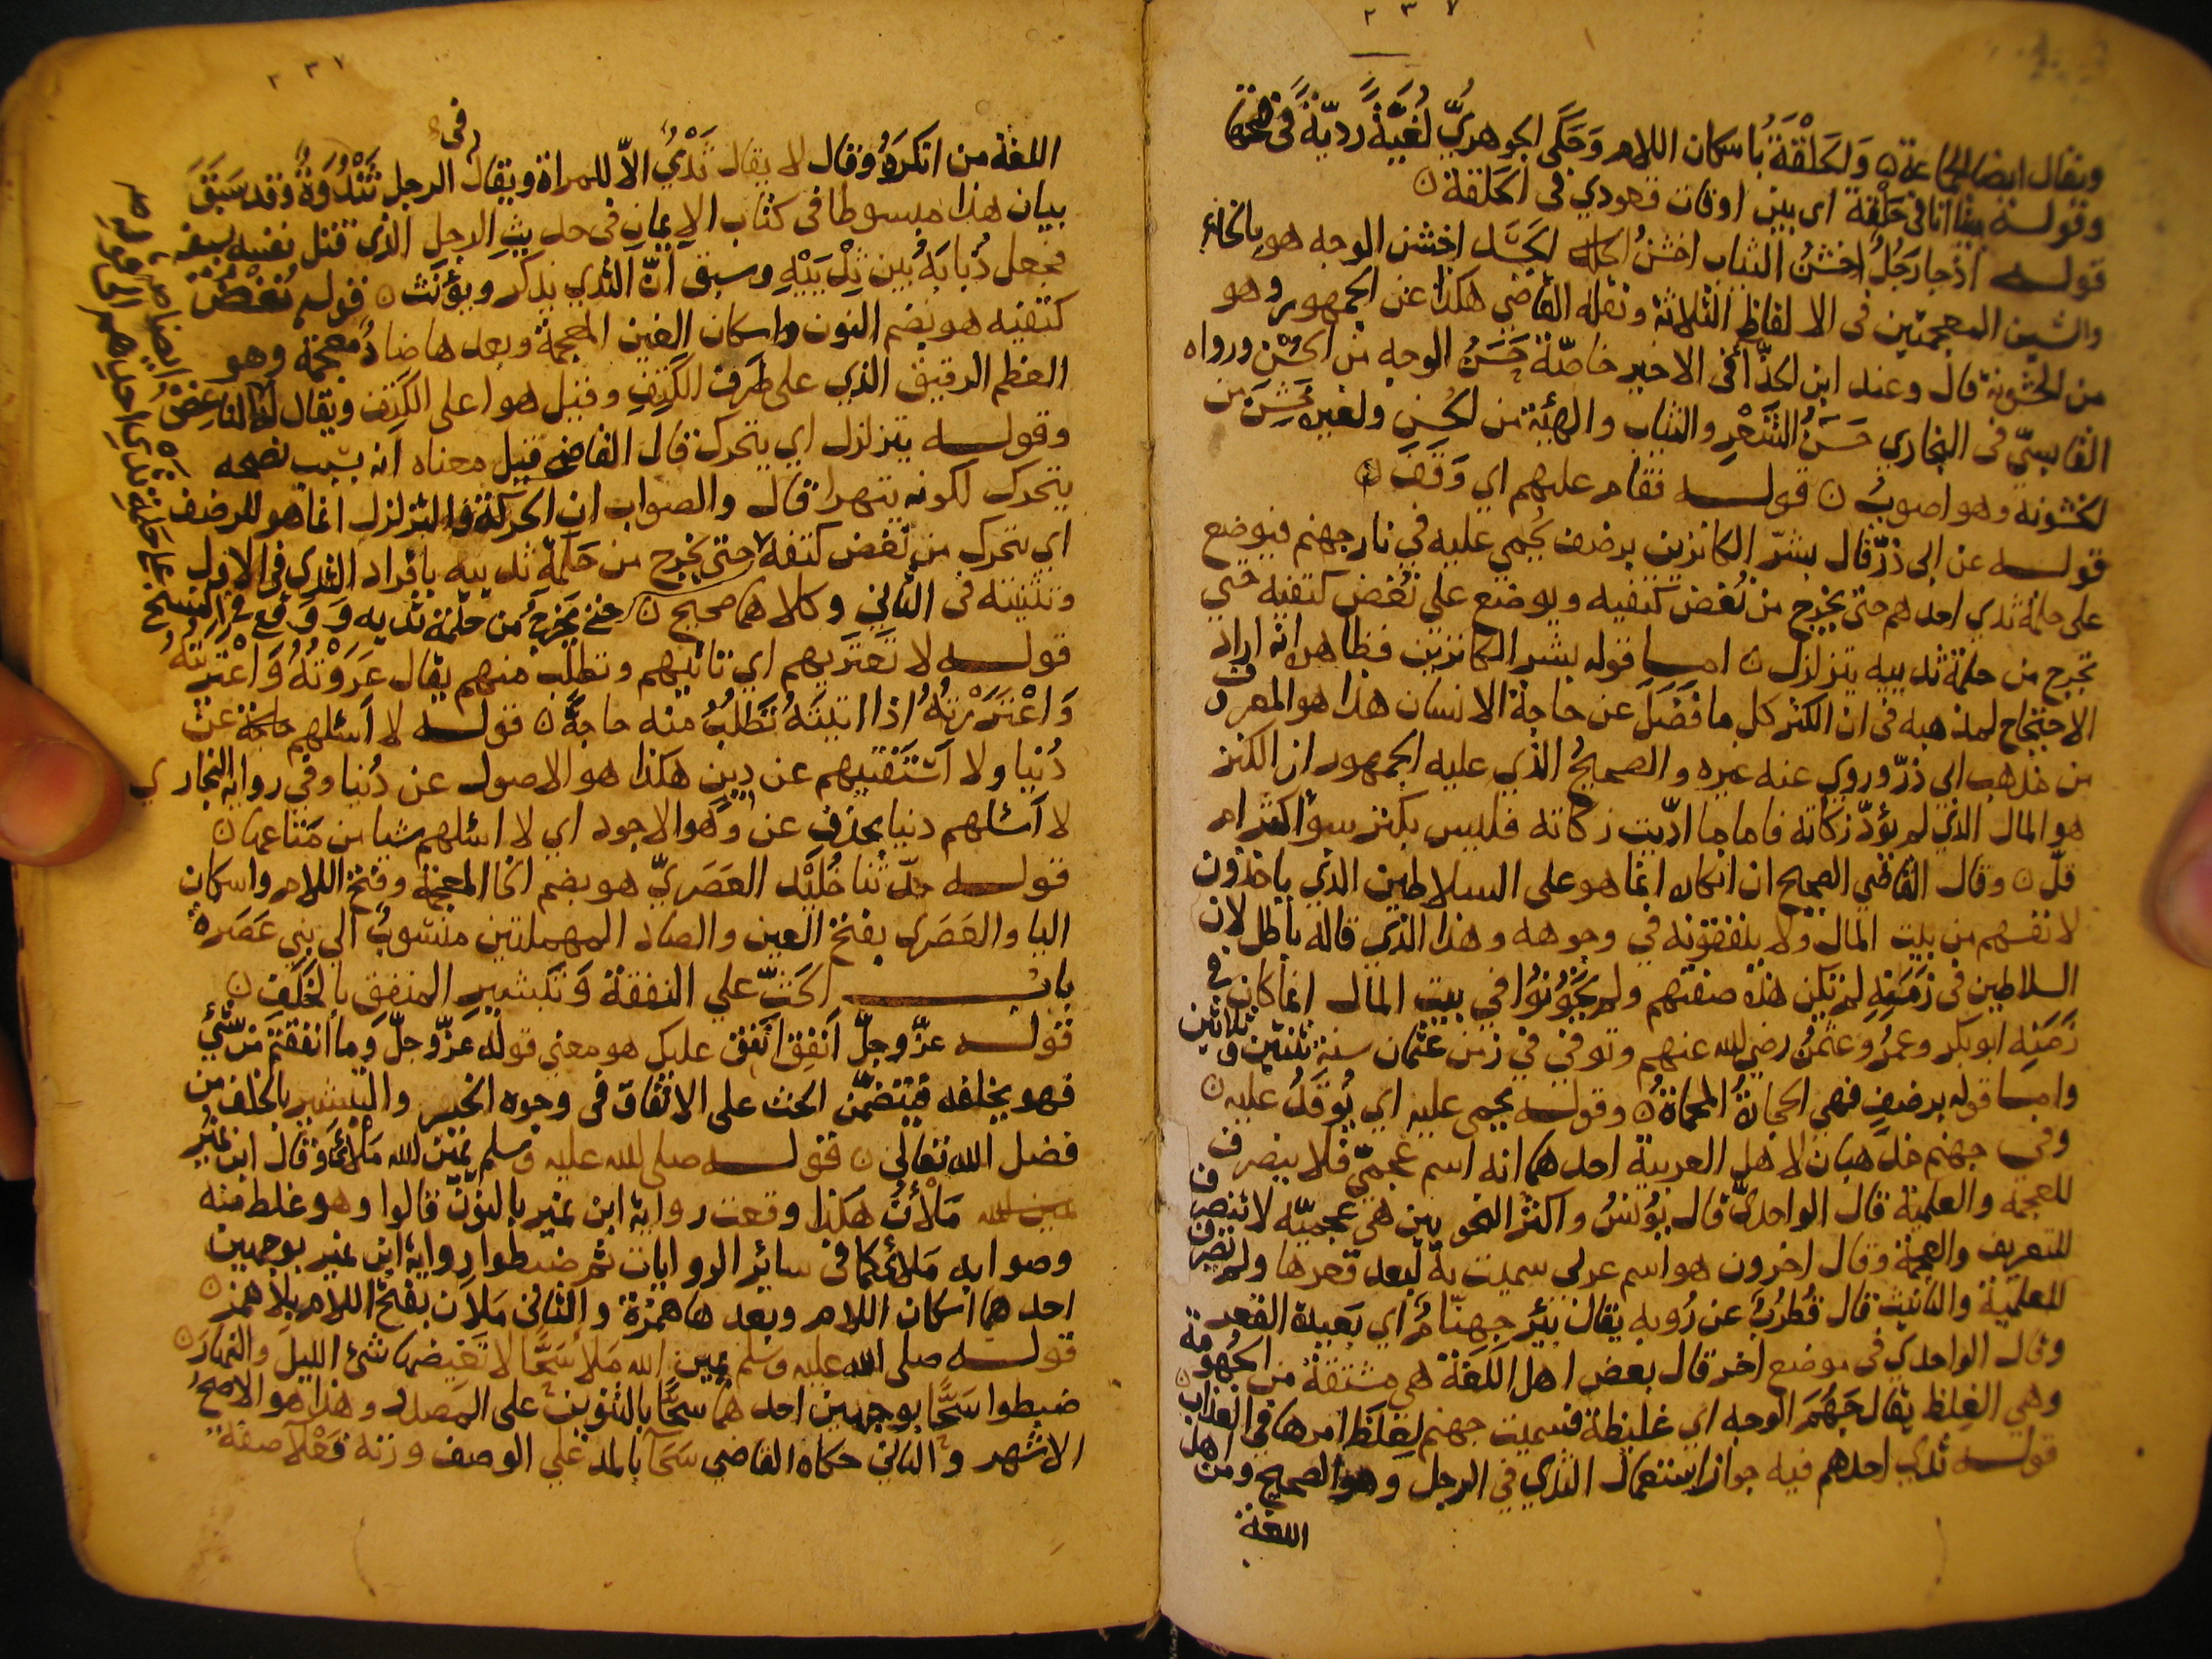 ٢٣٧
ويقال ايضا لجماعة ۞ وَالحَلْقَةُ باسكان اللام وَحَكَى الجوهريُّ لُغَيَّةً رديّةً فى فتحها
وقوله بينا انا فى حَلْقة اى بين اوقات قعودي فى الحلقة ۞
قوله اذ جا رَجُلٌ اخشنُ الثياب اخشنُ الجسد اخشن الوجه هو بالخاء
والشين المعجمتين فى الالفاظ الثلاثة ونقله القاضي هكذا عن الجمهور وهو
من الخشونة قال وعند ابن الحذّا فى الاخير خاصّة حَسَنُ الوجه من الحُسْن ورواه
القابسيّ فى البخاري حَسَنُ الشَّعْرِ والثياب والهيئة من الحُسنِ ولغيره خَشِنَ من
الخشونة وهو اصوبُ ۞ قوله فقام عليهم اي وَقَفَ ۞
قوله عن ابى ذرّ قال بشّر الكانزين برضف يُحمي عليه في نار جهنم فيوضع
على حلمة ثدي احدهم حتى يخرج من نُغض كتفيه ويوضع على نُغض كتفيه حتي
تخرج من حلمة ثدييه يتزلزل ۞ امّا قوله بشر الكانزين فظاهره انه اراد
الاحتجاج لمذهبه فى ان الكنز كل ما فَضَلَ عن حاجة الانسان هذا هو المعروف
من مذهب ابى ذرّ وروي عنه غيره والصحيحُ الذي عليه الجمهور ان الكنز
هو المال الذي لم تؤدّ زكاته فاما ما ادّيت زكاته فليس بكنز سوأ اكثر ام
قلّ ۞ وقال القاضي الصحيح ان انكاره انما هو على السلاطين الذي ياخذون
لانفسهم من بيت المال ولا ينفقونه في وجوهه وهذا الذي قاله باطل لان
السلاطين فى زَمَنِهِ لم تكن هذه صفتهم ولم يَخُونُوا في بيت المال انما كان في
زَمَنِه ابوبكر وعمرُ وعثمنُ رضي الله عنهم وتوفي في زمن عثمان سنة ثنتين وثلاثين
وامّا قوله برضفٍ فهي الحجارةُ المحماةُ ۞ وقوله يحمى عليه اي يُوقَدُ عليه ۞
وفى جهنم مذهبان لاهل العربية احدهما انه اسم عجميّ فلا ينصرف
للعجمة والعلمية قال الواحديّ قال يُونُسُ واكثر النحويين هي عجميّه لا تنصرف
للتعريف والعجمة وقال اخرون هو اسم عربي سميت به لبعد قعرها ولم تنصرف
للعلمية والتانيث قال قُطرُبُ عن رُوبه يقال بئر جِهِنّامُ اي بَعيدة القعر
وقال الواحدي فى موضع اخر قال بعض اهل اللغة هي مشتقة من الجُهُومة
وهي الغِلظ يقال جَهْمُ الوجه اي غليظة فسميت جهنم لِغلَظ امرها فى العذاب ۞
قوله ثدي احدهم فيه جواز استعمال الثدي في الرجل وهو الصحيح ومن اهل
اللغة
٢٣٧
اللغة من انكرَهُ وقال لا يقال ثَدْيٌ الاّ للمراة ويقال فى الرجل ثَنْدُوَةٌ وقد سَبَقَ
بيان هذا مبسوطا فى كتاب الايمان فى حديث الرجل الذي قتل نفسه بسيفه
فجعل ذُبابَهُ بين ثدْيَيْهِ وسبق اَنّ الثدي يذكر ويؤنث ۞ قوله نُغْضُ
كتفيه هو بضم النون واسكان الغين المعجمة وبعدها ضادٌ معجمة وهو
العظم الرقيق الذي على طرَف الكَتِفِ وقيل هو اعلى الكَتِفِ ويقال له النَاغِضُ ايضا
وقوله يتزلزل اي يتحرك قال القاضي قيل معناه انه بسبب نضجه
يتحرك لكونه يتهرا قال والصواب ان الحركة والتزلزل انما هو للرضف
اي يتحرك من نُغض كتفه حتى يخرج من حَلَمة ثدييه بافراد الثدي فى الاول
وتثنيته فى الثاني وكلاهما صحيح ۞
على حلمة ثدي احدهم الى قوله حتى يَخرجُ من حلمة ثدييه وَوَقَع في النسخ
قوله لا تَعتَرِيهم اي تاتيهم وتطلب منهم يقال عَرَوْتُهُ وَاعْتَرَيْتُهُ
وَاعْتَرَرْتُهُ اذا اتيتَهُ تَطلبُ منه حاجةً ۞ قوله لا اَسئلهم عن
دُنيا ولا اَسْتَفتيهم عن دِينٍ هكذا هو الاصول عن دُنيا وفى رواية البخاري
لا اَسئلهم دنيا بحذف عن وَهو الاجود اي لا اسئلهم شيا من مَتاعها ۞
قوله حدّثنا خُلَيْد العَصَريّ هو بضم الخا المعجمة وفتح اللام واسكان
اليا والعَصَرى بفتح العين والصاد المهملتين منسوبُ الى بني عَصَرة
بابُ الحَثّ علي النفقة وَتبشيرِ المنفِقِ بالخَلَفِ ۞
قوله عزّ وجلّ اَنفِق اُنفِق عليك هو معني قوله عزّ وجلّ وَما انفقتم من شَئٍ
فهو يخلفه فيتضمّن الحث على الانفاق فى وجوه الخير والتبشير بالخلف من
فضل الله تعالى ۞ قوله صلى الله عليه وسلم يَمينُ الله مَلأئ وَقال ابن نُمَيْر
مَلأنُ هكذا وقعت رواية ابن نمير بالنون قالوا وهو غلط منه
وصوابه مَلأئ كما فى سائر الروايات ثم ضبطوا رواية ابن نمير بوجهين
احدهما اسكان اللام وبعدها همزة والثانى مَلاَن بفتح اللام بلا همز ۞
قوله صلى الله عليه وسلم يمين الله مَلأ سَحًّا لا تَغيضها شئ الليلَ والنهارَ ۞
ضبطوا سَحًّا بوجهين احدهما سَحًّا بالتنوين على المَصدر وهذا هو الاصحّ
الاشهر والثاني حكاه القاضي سَحّآ بالمد علي الوصف وزنه فَعْلآ صفة